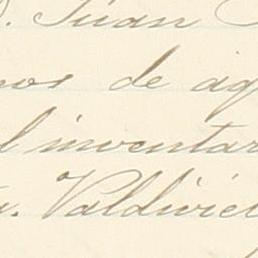 . Juan
nos de ag
l inventar
a. Valdivie